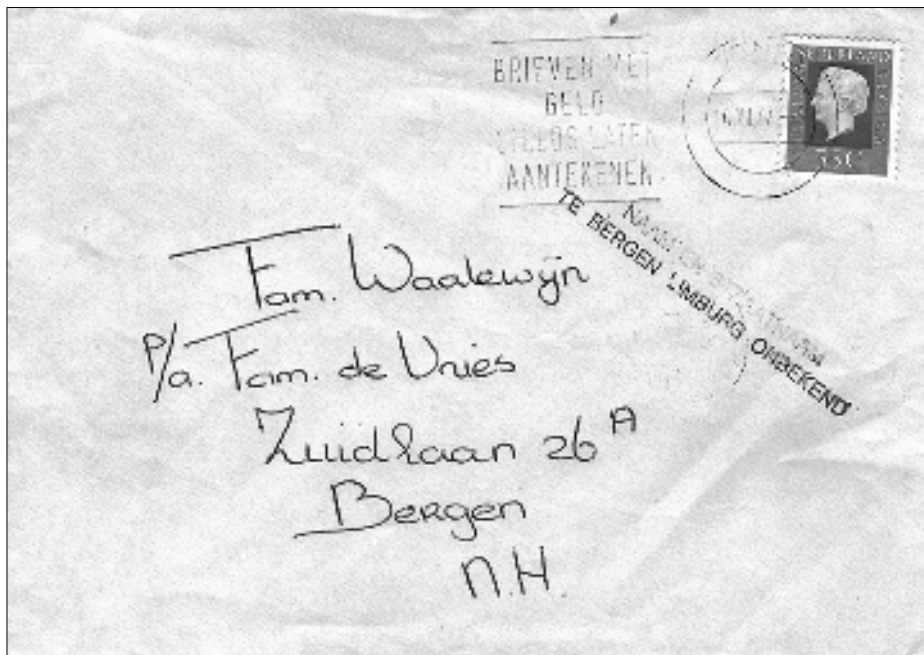 BRIEVEN MET
GELD
LATEN
AANTEKENEN
NEDERLAND
TE BERGEN LIMBURG ONBEKEND
Fam. Waalewijn
p/a. Fam. de Vries
Zuidlaan 26 A
Bergen
N.H.